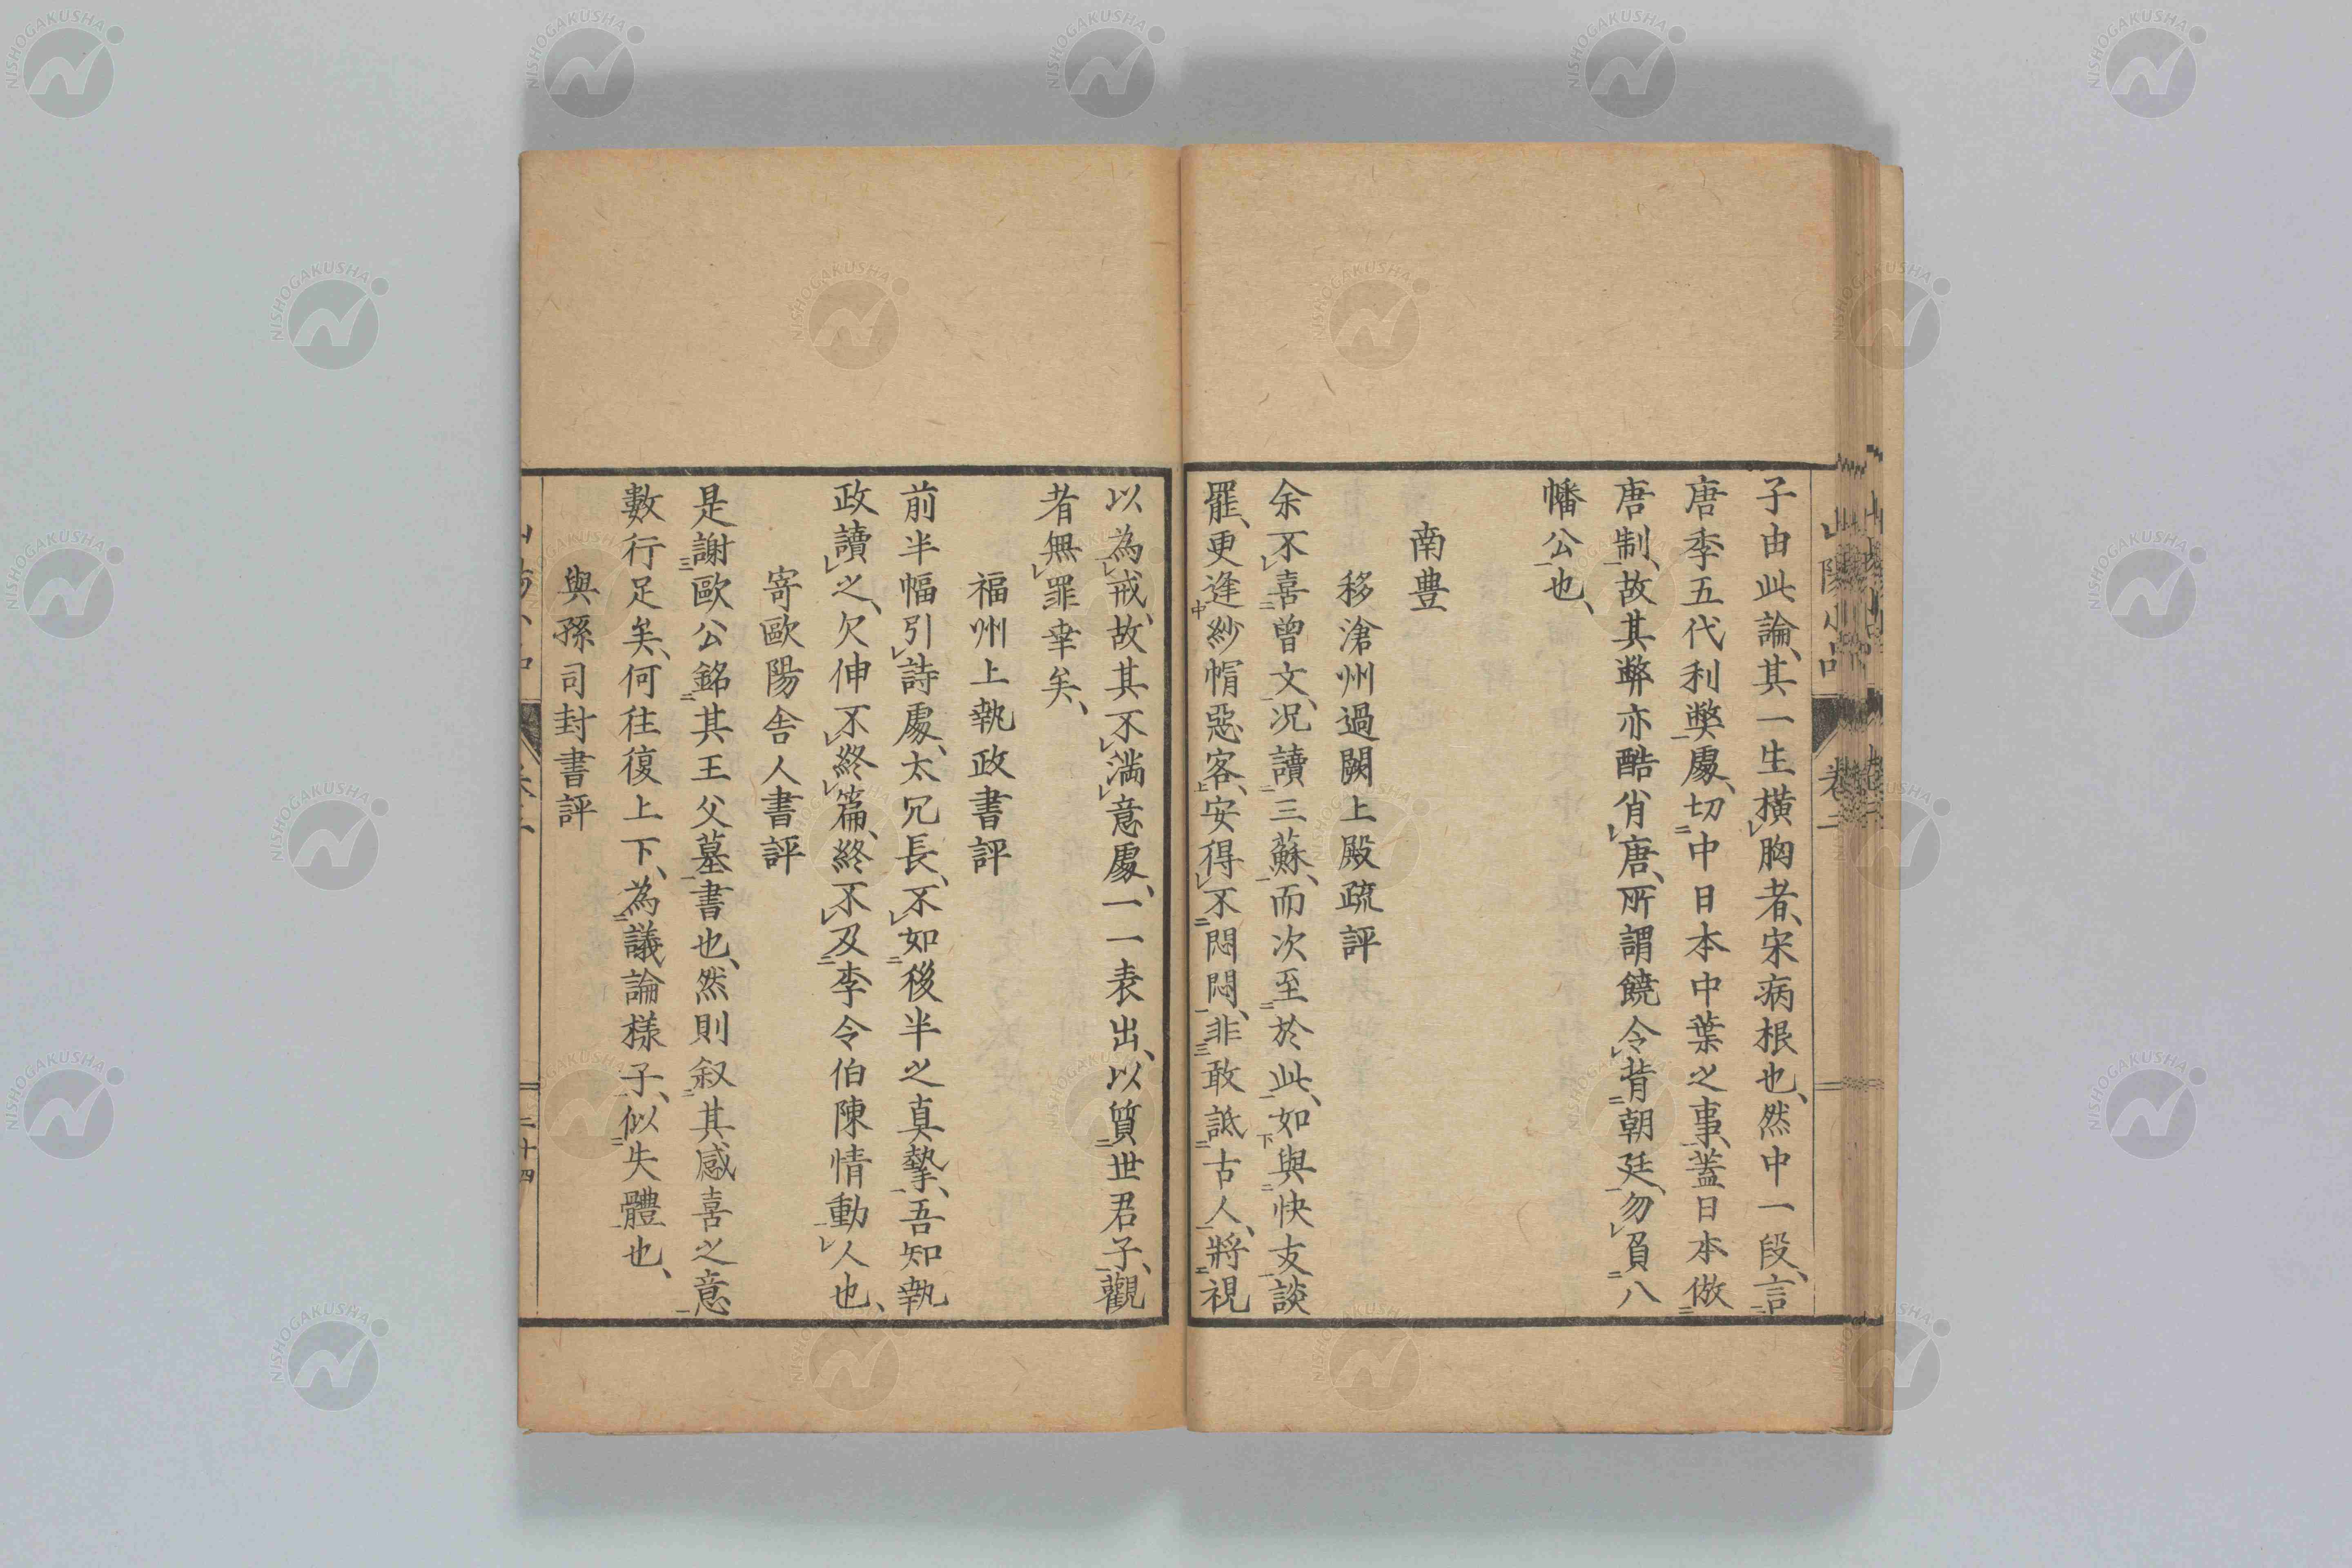 山陽小品 卷二
子由此論、其一生橫胸者、宋病根也、然中一段、言
唐季五代利弊處、切中日本中葉之事、蓋日本倣
唐制、故其弊亦酷肖唐、所謂饒令背朝廷、勿負八
幡公也、
南豊
移滄州過闕上殿疏評
余不喜曽文、况讀三蘇、而次至於此、如與快友談
罷、更逢紗帽惡客、安得不悶悶、非敢詆古人、將視
以為戒、故其不満意處、一一表出、以質世君子、觀
者無罪幸矣、
福州上執政書評
前半幅引詩處、太冗長、不如後半之真摯、吾知執
政讀之、欠伸不終篇、終不及李令伯陳情動人也、
寄歐陽舎人書評
是謝歐公銘其王父墓書也、然則叙其感喜之意
數行足矣、何往復上下、為議論樣子、似失體也、
與孫司封書評
二十四
NISHOGAKUSHA